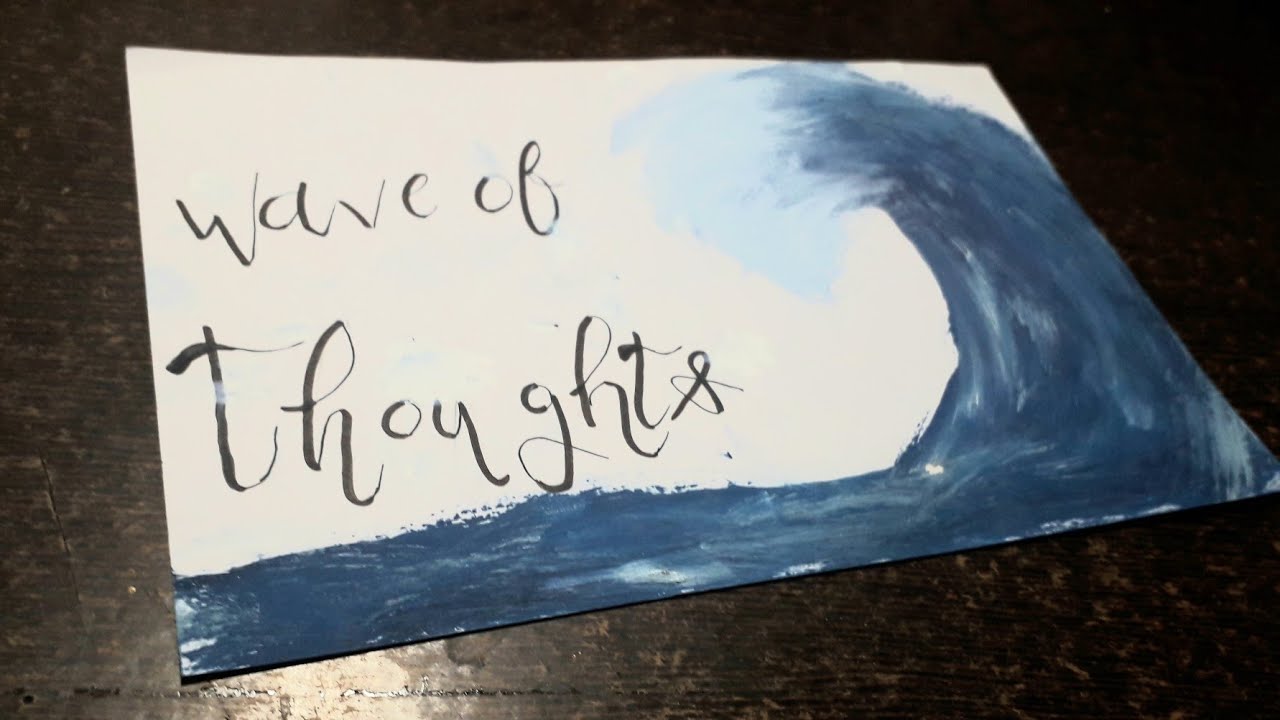 wave of
Thoughts